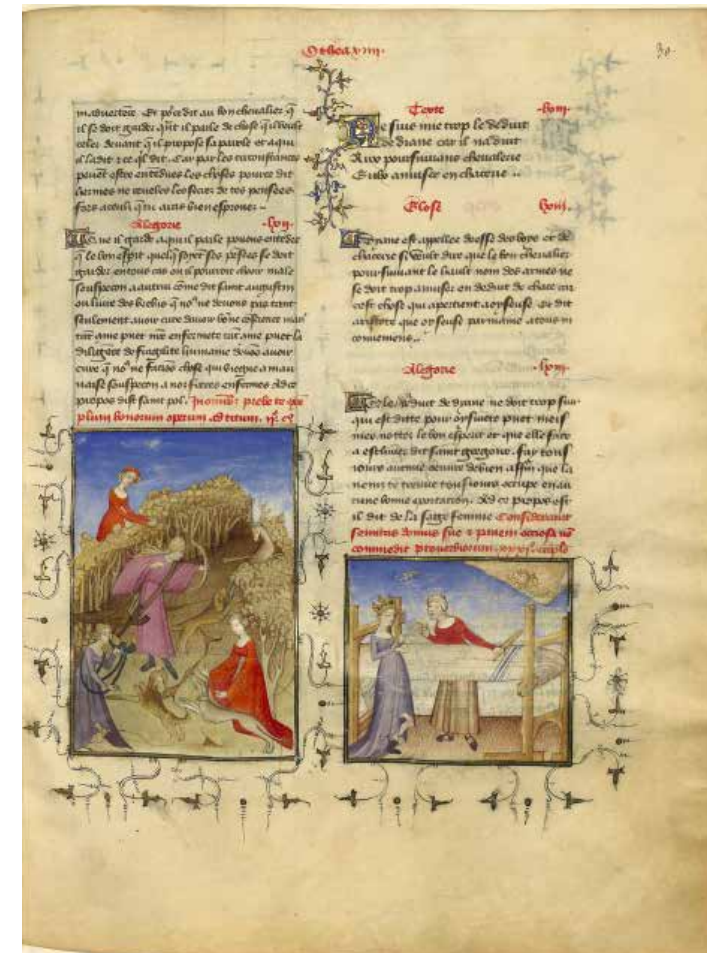 Othea xiiii
30
maduertere. Et pour ce dit au bon chevalier q̃
il se doit garder q̃nt il parle de chose qˀl veult
celer devant q̃ il propose sa parole et a qui
il la dit ⁊ ce ql dit. Car par les circonstances
peuẽt estre entẽdues les choses pource dit
hermes ne reveles les secres de tes pensees
fors a celui q̃ tu auras bien esprouve
Alegorie .lxii.
q̃ il garde a qui il parle povons entẽdre
q̃ le bon esprit quelq̃ soyẽt ses pẽsees se doit
garder en tous cas ou il pourroit cheoir male
souspecon a autrui cõme dit saint augustin
ou livre des brebis q̃ noˀ ne devons pas tant
seulement avoir cure davoir bõne cõscience mais
tãt cõme puet nr̃e enfermete tãt cõme puet la
diligẽce de fragilite humaine devõs avoir
cure q̃ noˀ ne faciõs chose qui viegne a mau
vaise souspecon a nos freres enfermes Ad ce
propos dist saint pol. In omnibˀ prebe te exẽ
plum bonorum operum Ad titum. iiº. cº
Texte .lxiii.
Ne suis mie trop le deduit
de dyane car il na duit
Aux poursuivans chevalerie
Eulx amuser en chacerie
Glose lxiii.
Dyane est appellee deesse des boys et de
chacerie si veult dire que le bon chevalier
poursuivant le hault nom des armes ne
se doit trop amuser en deduit de chace car
cest chose qui apertient a oyseuse. Et dit
aristote que oyseuse par maine a tous in
conveniens
Alegorie .lxiii.
Que le deduit de dyane ne doit trop suir
qui est ditte pour oysivete puet mesis
mes notter le bon esperit et que elle face
a eschiver dit saint gerosme. fay tous
iours aucune oeuvre de bien affin que la
nemi te treuve tousiours occupe en au
cune bonne exercitacion. Ad ce propos est
il dit de la saige femme Consideravit
semitas domus sue ⁊ panem ociosa nõ
commedit Proverbiorum. xxxi. caplo